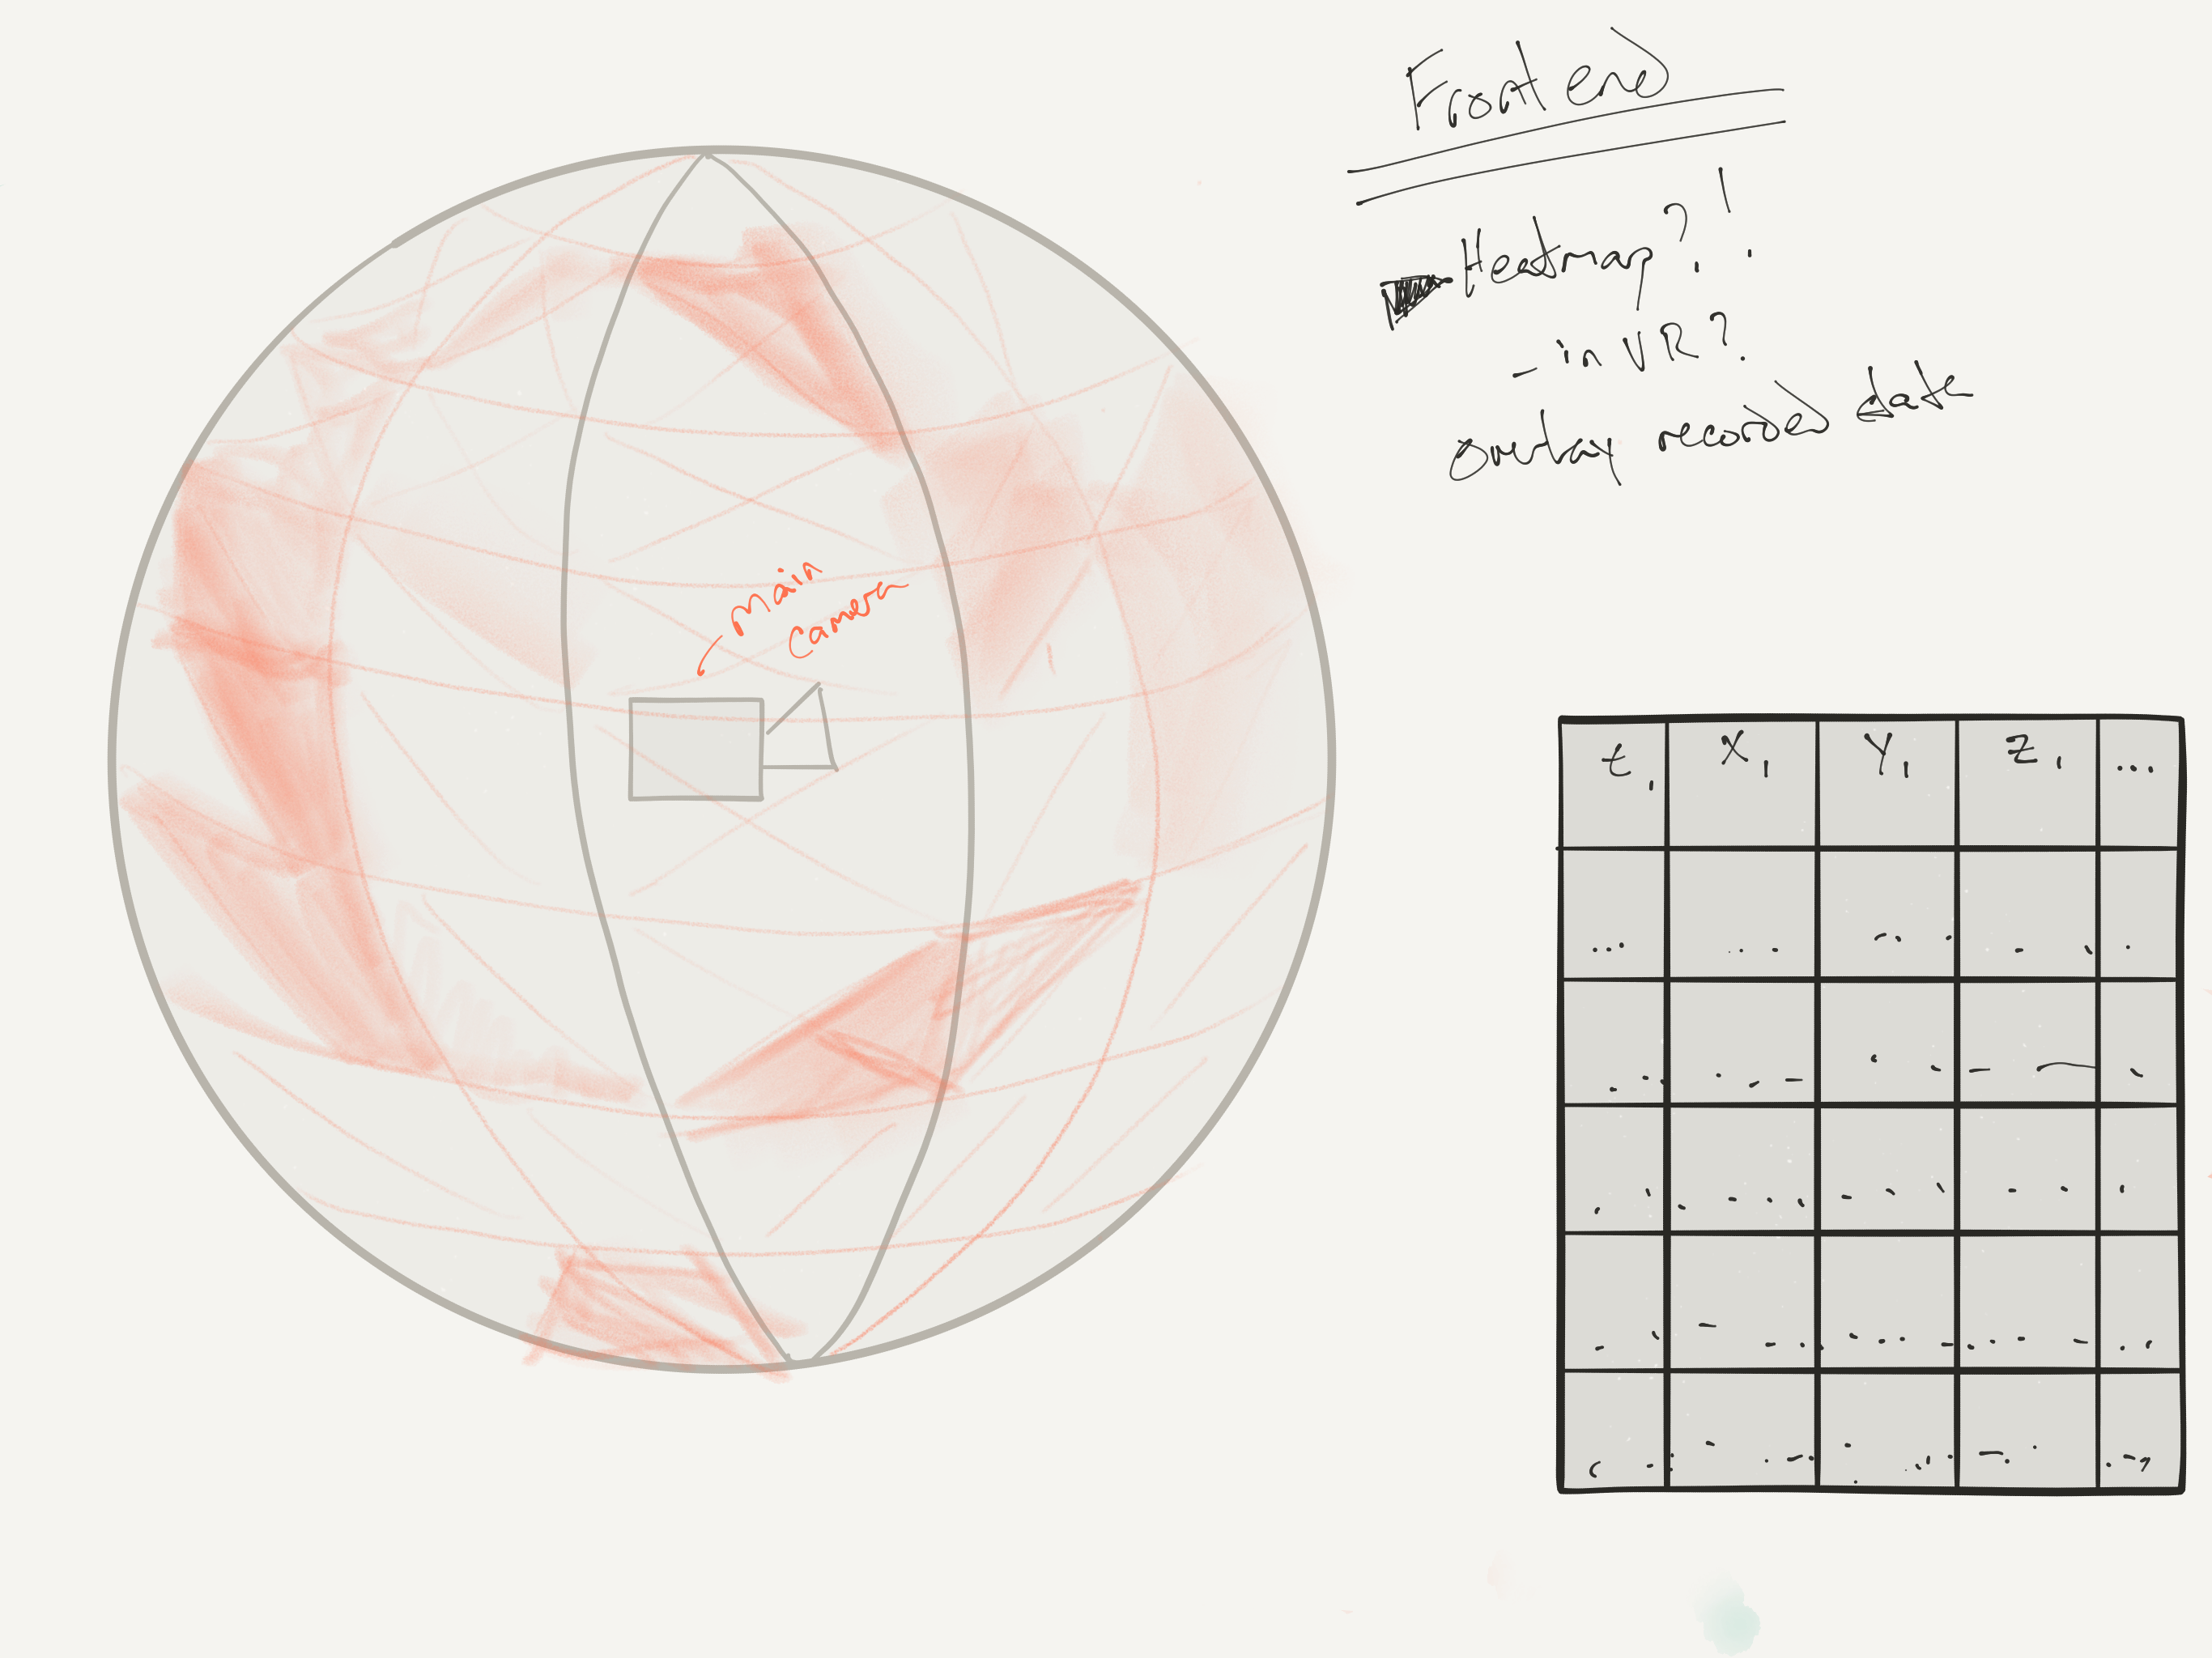 Frontend
Heatmap?!
- in VR?
overlay recorded data
Main
Camera
t₁ X₁ Y₁ Z₁ ...